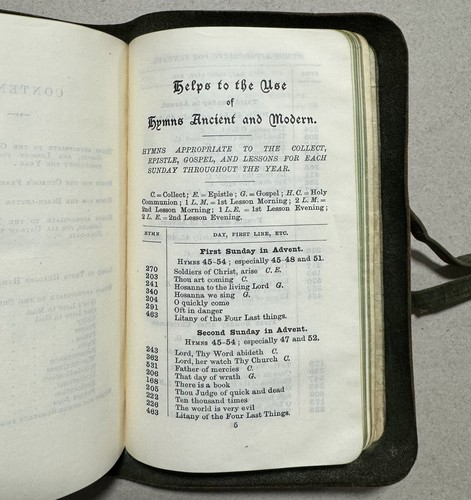 CONTEN
Helps to the Use
of
Hymns Ancient and Modern.
HYMNS APPROPRIATE TO THE COLLECT,
EPISTLE, GOSPEL, AND LESSONS FOR EACH
SUNDAY THROUGHOUT THE YEAR.
C. = Collect; E. = Epistle; G. = Gospel; H. C. = Holy
Communion; 1 L. M. = 1st Lesson Morning; 2 L. M. =
2nd Lesson Morning; 1 L. E. = 1st Lesson Evening;
2 L. E. = 2nd Lesson Evening.
HYMN DAY, FIRST LINE, ETC.
First Sunday in Advent.
HYMNS 45-54; especially 45-48 and 51.
270 Soldiers of Christ, arise C. E.
203 Thou art coming C.
241 Hosanna to the living Lord G.
340 Hosanna we sing G.
204 O quickly come
291 Oft in danger
463 Litany of the Four Last things.
Second Sunday in Advent.
HYMNS 45-54; especially 47 and 52.
243 Lord, Thy Word abideth C.
362 Lord, her watch Thy Church C.
531 Father of mercies C.
206 That day of wrath G.
168 There is a book
205 Thou Judge of quick and dead
222 Ten thousand times
226 The world is very evil
463 Litany of the Four Last Things.
5